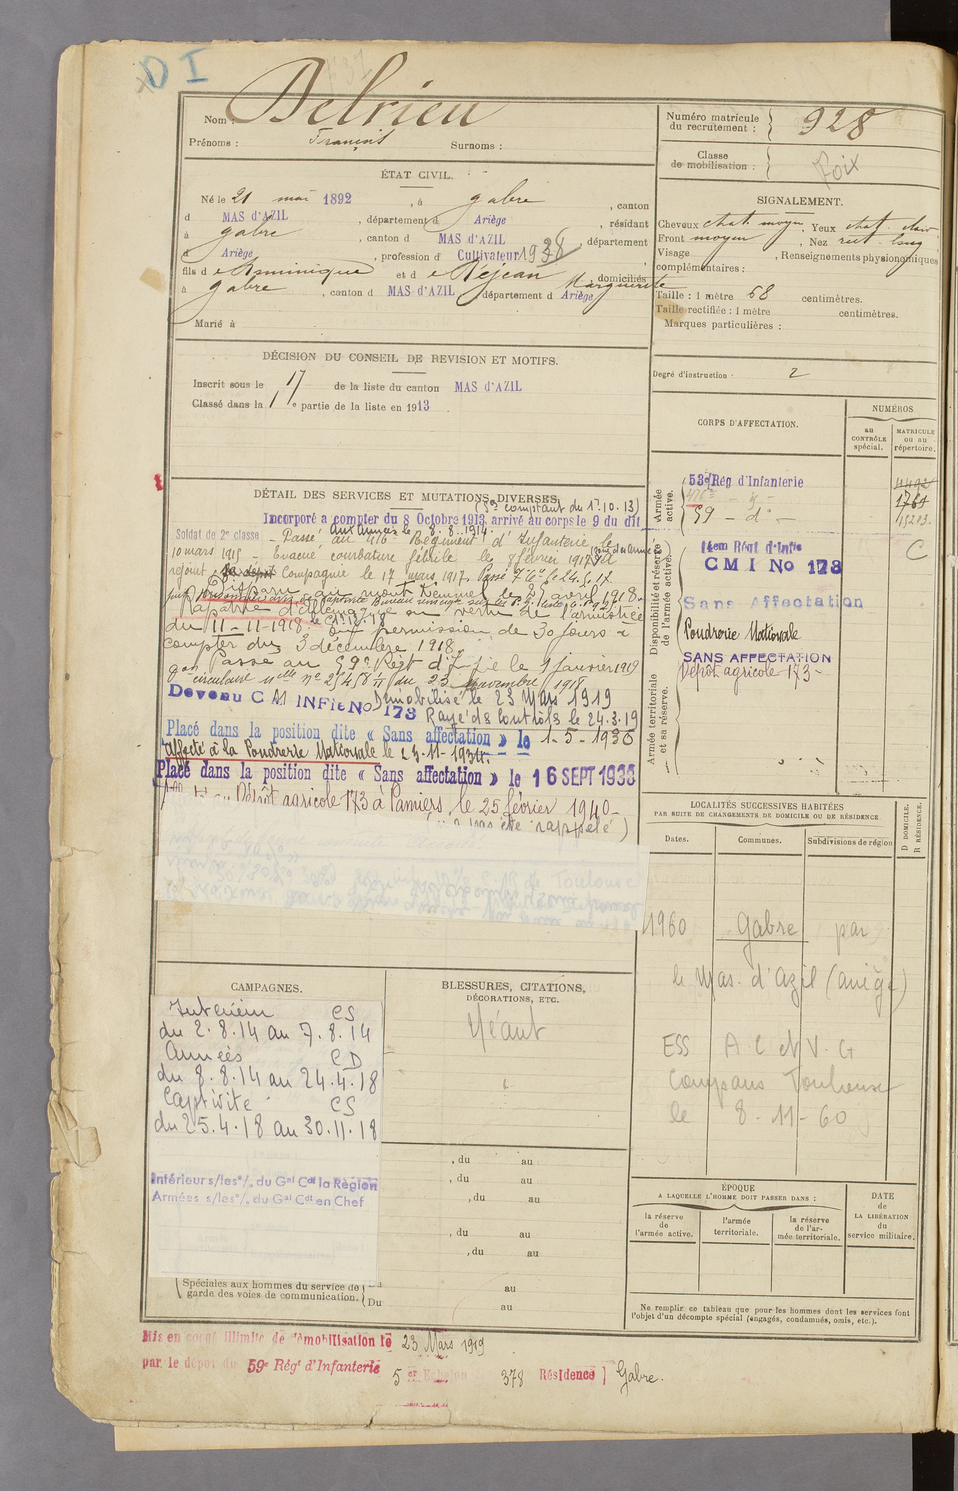 D I
Nom : Delrieu
Prénoms : François Surnoms :
Numéro matricule du recrutement : 928
Classe de mobilisation :
Foix
ÉTAT CIVIL.
Né le 21 mai 1892, à Gabre, canton
d MAS d'AZIL, département d Ariège, résidant
à Gabre, canton d MAS d'AZIL, département
d Ariège, profession d Cultivateur 1938
fils d e Dominique et d e Rejean Marguerite domiciliés
à Gabre, canton d MAS d'AZIL département d Ariège
Marié à
SIGNALEMENT.
Cheveux chat. moyen, Yeux chat. clair
Front moyen, Nez rect. long
Visage, Renseignements physionomiques
complémentaires :
Taille : 1 mètre 68 centimètres.
Taille rectifiée : 1 mètre centimètres.
Marques particulières :
Degré d'instruction 2
DÉCISION DU CONSEIL DE REVISION ET MOTIFS.
Inscrit sous le n° 17 de la liste du canton MAS d'AZIL
Classé dans la 1e partie de la liste en 1913.
CORPS D'AFFECTATION.
NUMÉROS
au CONTRÔLE spécial.
MATRICULE ou au répertoire.
Armée active.
53e Rég d'Infanterie
416e
59 - d° -
4492
1761
15283
Disponibilité et réserve de l'armée active.
14em Régt d'Infie
C M I No 173
C
Sans Affectation
Poudrerie Nationale
SANS AFFECTATION
Dépôt agricole 173 -
Armée territoriale et sa réserve.
DÉTAIL DES SERVICES ET MUTATIONS DIVERSES.
(Se comptant du 1er.10.13)
Incorporé a compter du 8 Octobre 1913, arrivé au corps le 9 du dit
Aux Armées le 8.8.1914
Soldat de 2e classe - Passé au 416e Régiment d'Infanterie le
10 mars 1915 - Evacué courbature fébrile le 8 février 1917.
rejoint Compagnie le 17 mars 1917. Passé 7e Cie le 24.5.17
Disparu au mont Kemmel le 25 avril 1918.
Rapatrié d'Allemagne en vertu de l'armistice
du 11-11-1918. le 1.12.18
En permission de 30 jours à
compter du 3 décembre 1918.
Passé au 59e Régt d'Infie le 9 janvier 1919
circulaire nelle n° 25458 1/1 du 23 novembre 1918.
Devenu C M INFIE No 173
Démobilisé le 23 Mars 1919
Rayé ds Contrôls le 24.3.19
Placé dans la position dite « Sans affectation » le 1-5-1930
Affecté à la Poudrerie Nationale le 23-11-1934.
Placé dans la position dite « Sans affectation » le 16 SEPT 1938
Dépôt agricole 173 à Pamiers, le 25 février 1940-
été rappelé)
LOCALITÉS SUCCESSIVES HABITÉES
PAR SUITE DE CHANGEMENTS DE DOMICILE OU DE RÉSIDENCE.
Dates. Communes. Subdivisions de région
D DOMICILE.
R RÉSIDENCE.
1960 Gabre par
le Mas. d'Azil (Ariège)
ESS A C et V. G
Compans Toulouse
le 8-11-60
CAMPAGNES.
Intérieur CS
du 2.8.14 au 7.8.14
Armées CD
du 8.8.14 au 24.4.18
Captivité CS
du 25.4.18 au 30.11.18
Intérieur s/les°/. du Gal Cdt la Région
Armées s/les°/. du Gal Cdt en Chef
Spéciales aux hommes du service de garde des voies de communication. Du
BLESSURES, CITATIONS,
DÉCORATIONS, ETC.
Néant
, du au
, du au
, du au
, du au
, du au
au
au
ÉPOQUE
A LAQUELLE L'HOMME DOIT PASSER DANS :
la réserve de l'armée active.
l'armée territoriale.
la réserve de l'armée territoriale.
DATE de LA LIBÉRATION du service militaire.
Ne remplir ce tableau que pour les hommes dont les services font
l'objet d'un décompte spécial (engagés, condamnés, omis, etc.).
Mis en congé illimité de démobilisation le 23 Mars 1919
par le dépôt du 59e Régt d'Infanterie
5er Echelon 378 Résidence Gabre.